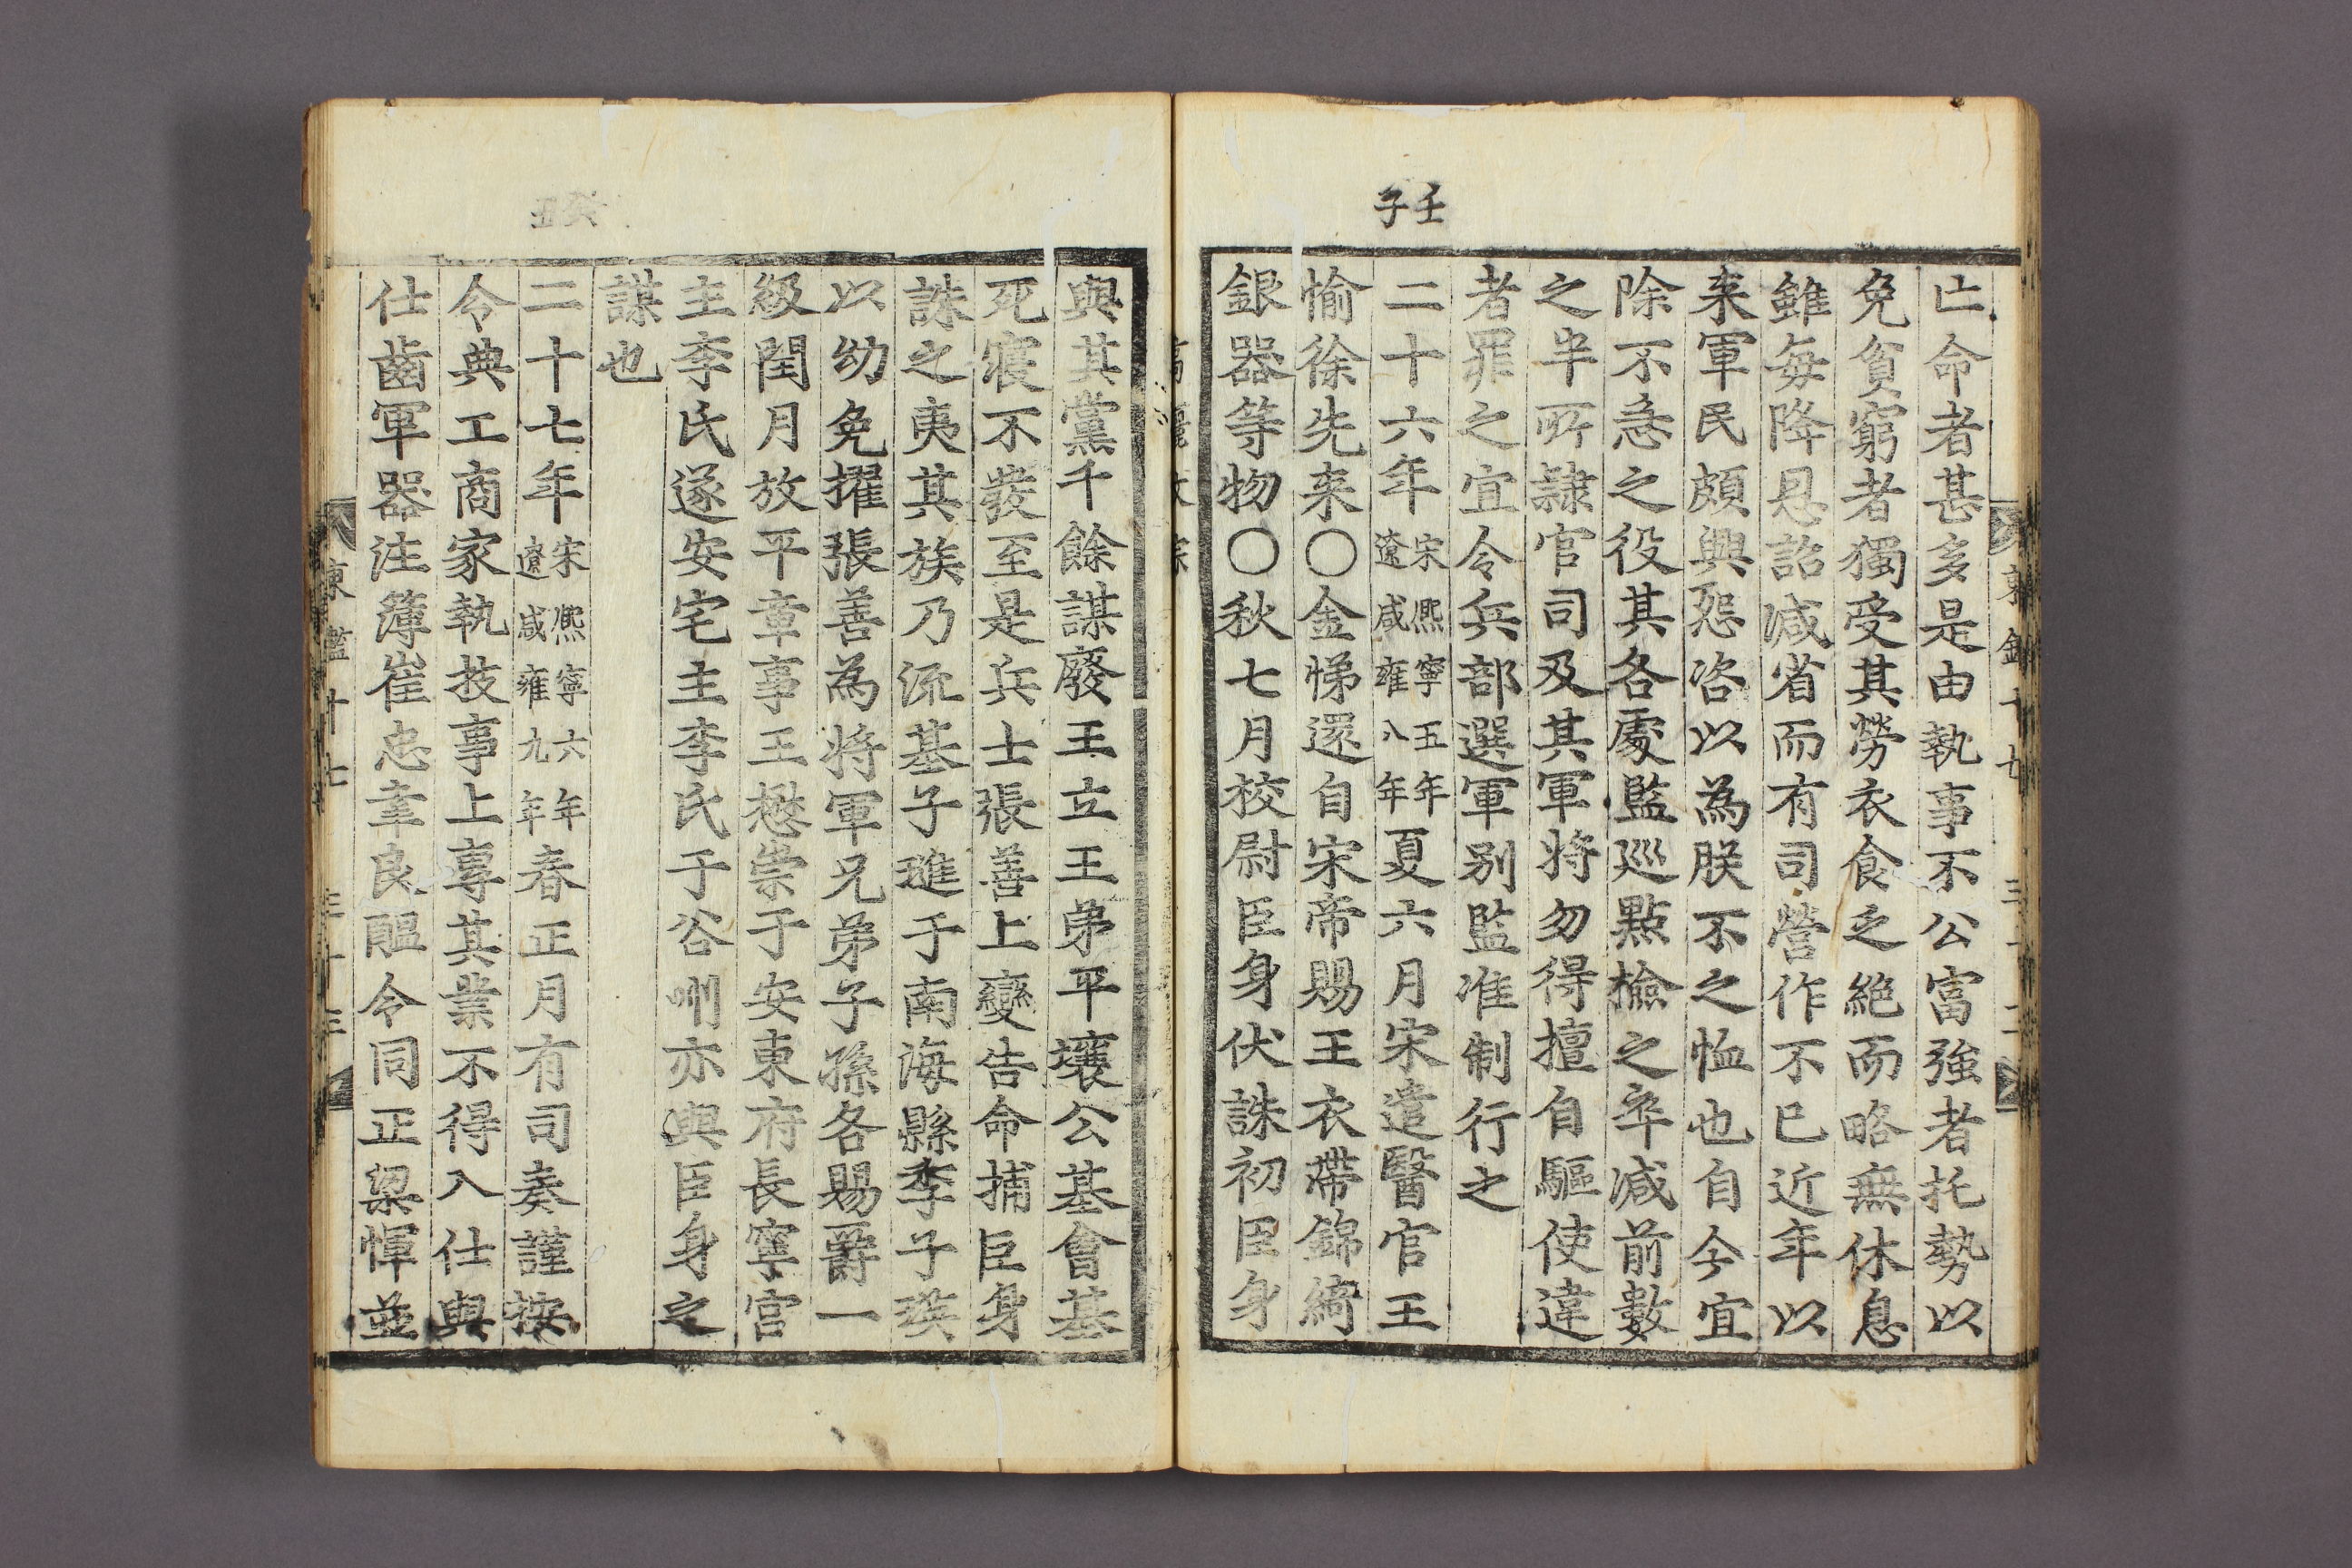 壬子
亡命者甚多是由執事不公富強者托勢以
免貧窮者獨受其勞衣食乏絕而略無休息
雖每降恩詔减省而有司營作不已近年以
来軍民頗興怨咨以為朕不之恤也自今宜
除不急之役其各處監巡點檢之卒减前數
之半所隷官司及其軍将勿得擅自驅使違
者罪之宜令兵部選軍别監准制行之
二十六年宋熈寧五年遼咸雍八年夏六月宋遣醫官王
愉徐先来○金悌還自宋帝賜王衣帶錦綺
銀器等物○秋七月校尉臣身伏誅初臣身
癸丑
與其黨千餘謀廢王立王弟平壤公基會基
死寢不發至是兵士張善上變告命捕臣身
誅之夷其族乃流基子璡于南海縣季子瑛
以幼免擢張善為将軍兄弟子孫各賜爵一
級閏月放平章事王懋崇于安東府長寧宮
主李氏遂安宅主李氏于谷州亦與臣身之
謀也
二十七年宋熈寧六年遼咸雍九年春正月有司奏謹按
令典工商家執技事上專其業不得入仕與
仕齒軍器注簿崔忠幸良醞令同正梁惲並
東鑑十七 三十三